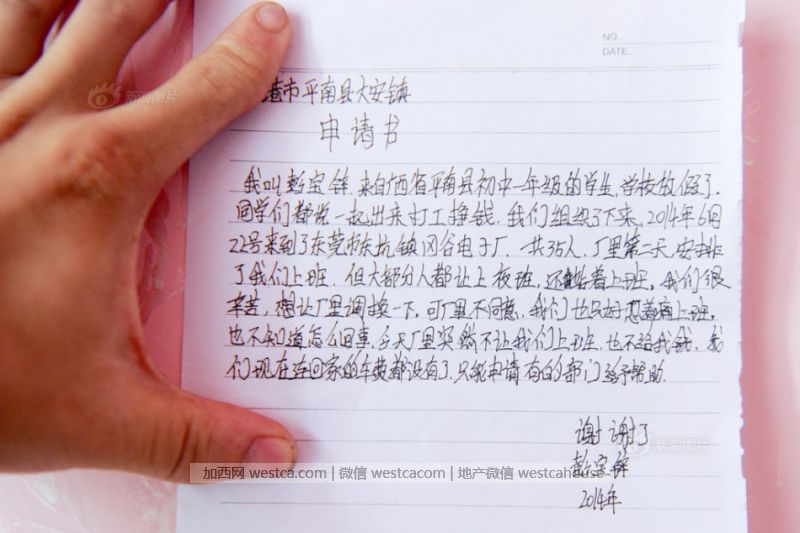 NO..
DATE..
港市平南县大安镇
新浪图片
申请书
我叫彭宝锋.来自广西省平南县初中一年级的学生,学校放假了.
同学们都说一起出来打工挣钱.我们组织了下来,2014年6月
22号来到了东莞市东坑镇冈谷电子厂.一共35人.厂里第二天,安排
了我们上班.但大部分人都让上夜班,还站着上班,我们很
辛苦,想让厂里调换一下,可厂里不同意,我们也只好忍着痛上班,
也不知道怎么回事,今天厂里突然不让我们上班.也不给我钱.我
们现在连回家的车费都没有了.只能申请有的部门给予帮助.
谢谢了
新浪图片
彭宝锋
2014年
加西网 westca.com | 微信 westcacom | 地产微信 westcahouse